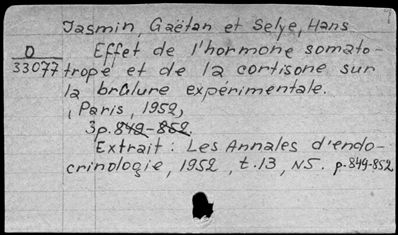 Jasmin, Gaëtan et Selye, Hans
0
33077
Effet de l'hormone somato-
trope et de la cortisone sur
la brûlure expérimentale.
(Paris, 1952)
3p. 849-852
Extrait: Les Annales d'endo-
crinologie, 1952, t.13, N5. p.849-852